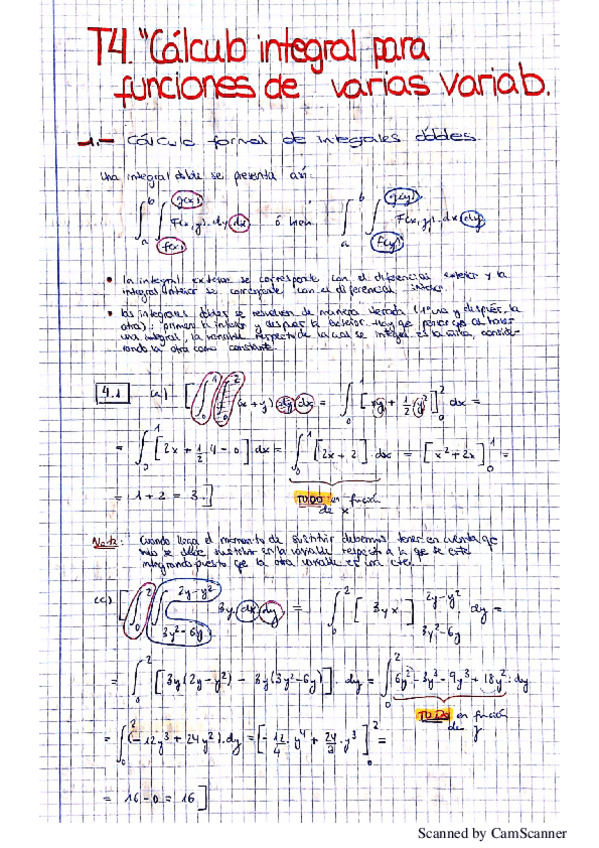 T4. "Cálculo integral para
funciones de varias variab.
1.- Cálculo formal de integrales dobles.
Una integral doble se presenta así:
∫_a^b ∫_{f(x)}^{g(x)} F(x,y) · dy dx ó bien ∫_a^b ∫_{f(y)}^{g(y)} F(x,y) · dx dy
• la integral exterior se corresponde con el diferencial exterior y la
integral interior se corresponde con el diferencial interior.
• las integrales dobles se resuelven de manera iterada (1º una y después la
otra): primero la interior y después la exterior. Hay que tener ojo al hacer
una integral, la variable respecto de la cual se integra es la única, conside-
rando la otra como constante.
4.1 (a) [∫_0^1 ∫_0^2 (x+y) dy dx = ∫_0^1 [xy + 1/2 y²]_0^2 dx =
= ∫_0^1 [2x + 1/2 4 - 0] dx = ∫_0^1 [2x + 2] · dx = [x² + 2x]_0^1 =
= 1 + 2 = 3.]
TODO en función
de x
Nota: Cuando llega el momento de sustituir debemos tener en cuenta que
solo se debe sustituir en la variable respecto a la que se esté
integrando puesto que la otra variable es una cte.
(c) [∫_0^2 ∫_{3y²-6y}^{2y-y²} 3y dx dy = ∫_0^2 [3yx]_{3y²-6y}^{2y-y²} dy =
= ∫_0^2 [3y(2y-y²) - 3y(3y²-6y)] · dy = ∫_0^2 6y² - 3y³ - 9y³ + 18y² · dy
TODO en función
de y
= ∫_0^2 (-12y³ + 24y²) · dy = [-12/4 · y⁴ + 24/3 · y³]_0^2 =
= 16 - 0 = 16]
Scanned by CamScanner